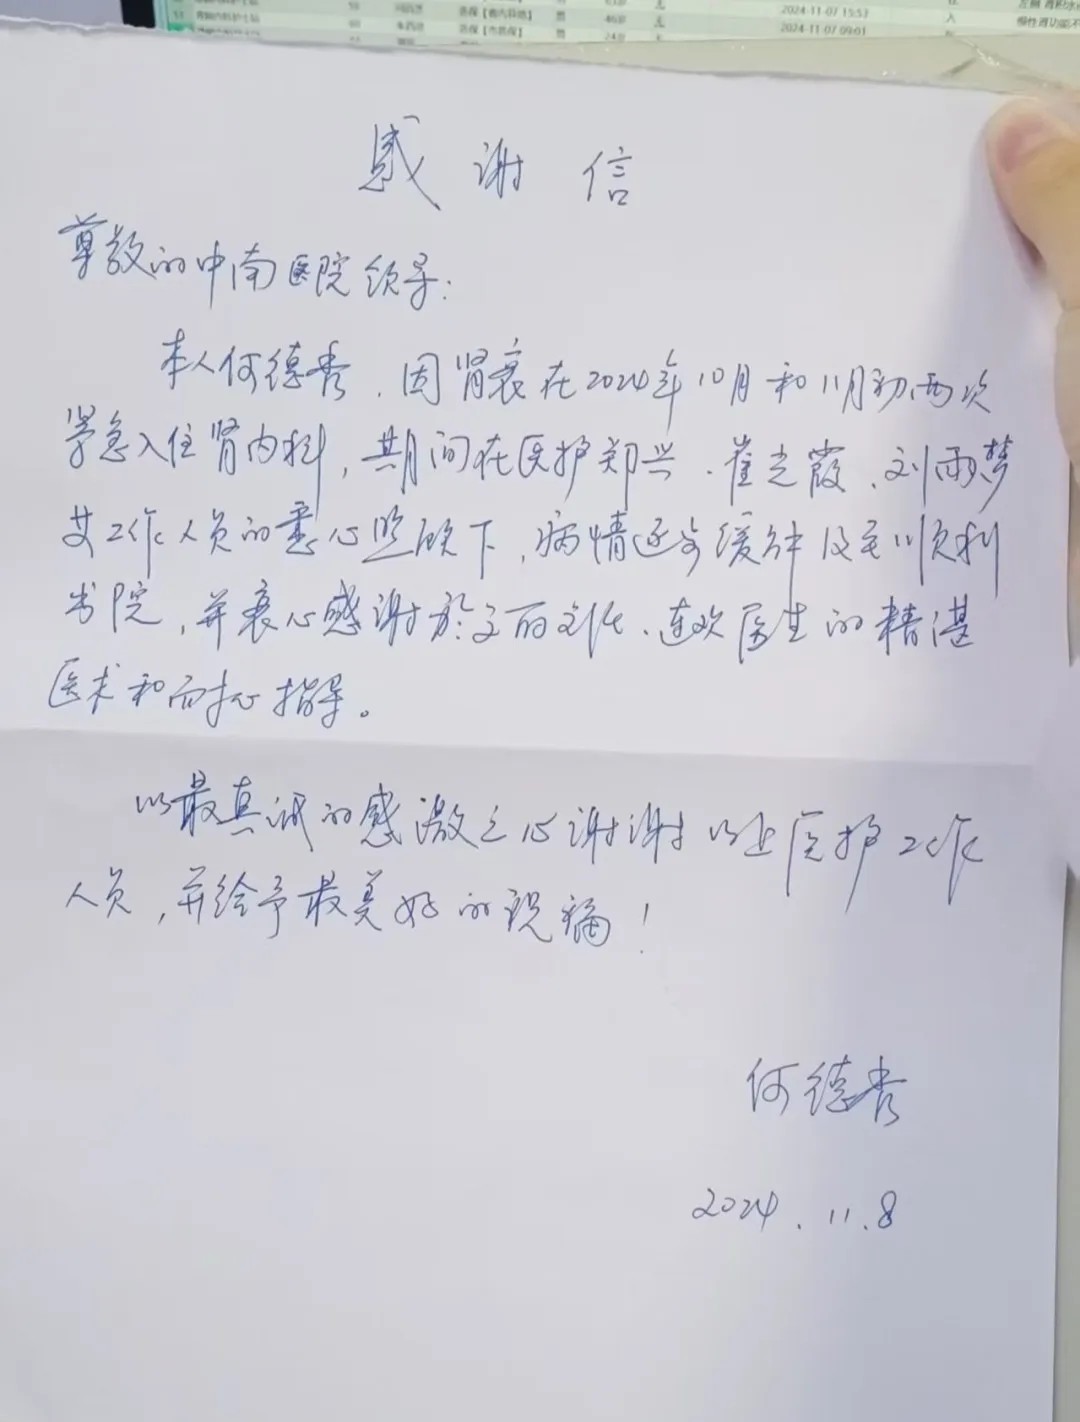 2024-11-07 15:53
2024-11-07 09:01
感谢信
尊敬的中南医院领导：
本人何德秀，因肾衰在2024年10月和11月初两次
紧急入住肾内科，期间在医护郑兴、崔光霞、刘雨梦
等工作人员的悉心照顾下，病情逐步缓解及至顺利
出院，并衷心感谢 医生的精湛
医术和耐心指导。
以最真诚的感激之心谢谢以上医护工作
人员，并给予最美好的祝福！
何德秀
2024.11.8